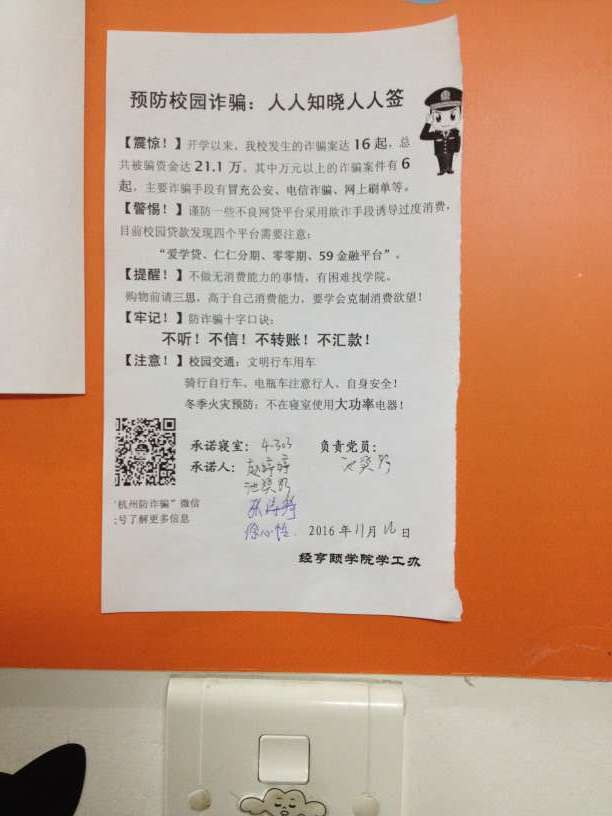 预防校园诈骗：人人知晓人人签
【震惊！】开学以来，我校发生的诈骗案达 16 起，总
共被骗资金达 21.1 万。其中万元以上的诈骗案件有 6
起，主要诈骗手段有冒充公安、电信诈骗、网上刷单等。
【警惕！】谨防一些不良网贷平台采用欺诈手段诱导过度消费，
目前校园贷款发现四个平台需要注意：
“爱学贷、仁仁分期、零零期、59 金融平台”。
【提醒！】不做无消费能力的事情，有困难找学院。
购物前请三思，高于自己消费能力，要学会克制消费欲望！
【牢记！】防诈骗十字口诀：
不听！不信！不转账！不汇款！
【注意！】校园交通：文明行车用车
骑行自行车、电瓶车注意行人、自身安全！
冬季火灾预防：不在寝室使用大功率电器！
承诺寝室：4-303 负责党员：
承诺人：赵婷婷
杭州防诈骗”微信
号了解更多信息
徐心怡
2016 年 11 月 日
经亨颐学院学工办